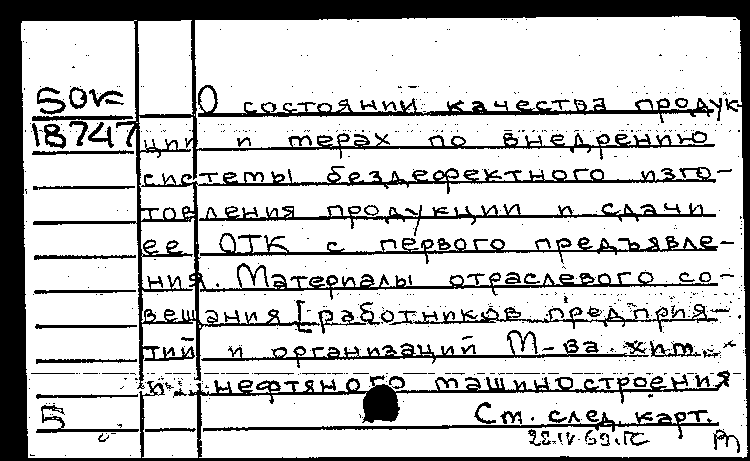 50к О состоянии качества продук-
18747 ции и мерах по внедрению
системы бездефектного изго-
товления продукции и сдачи
ее ОТК с первого предъявле-
ния. Материалы отраслевого со-
вещания [работников предприя-
тий и организаций М-ва хим.
и нефтяного машиностроения
5 См. след. карт.